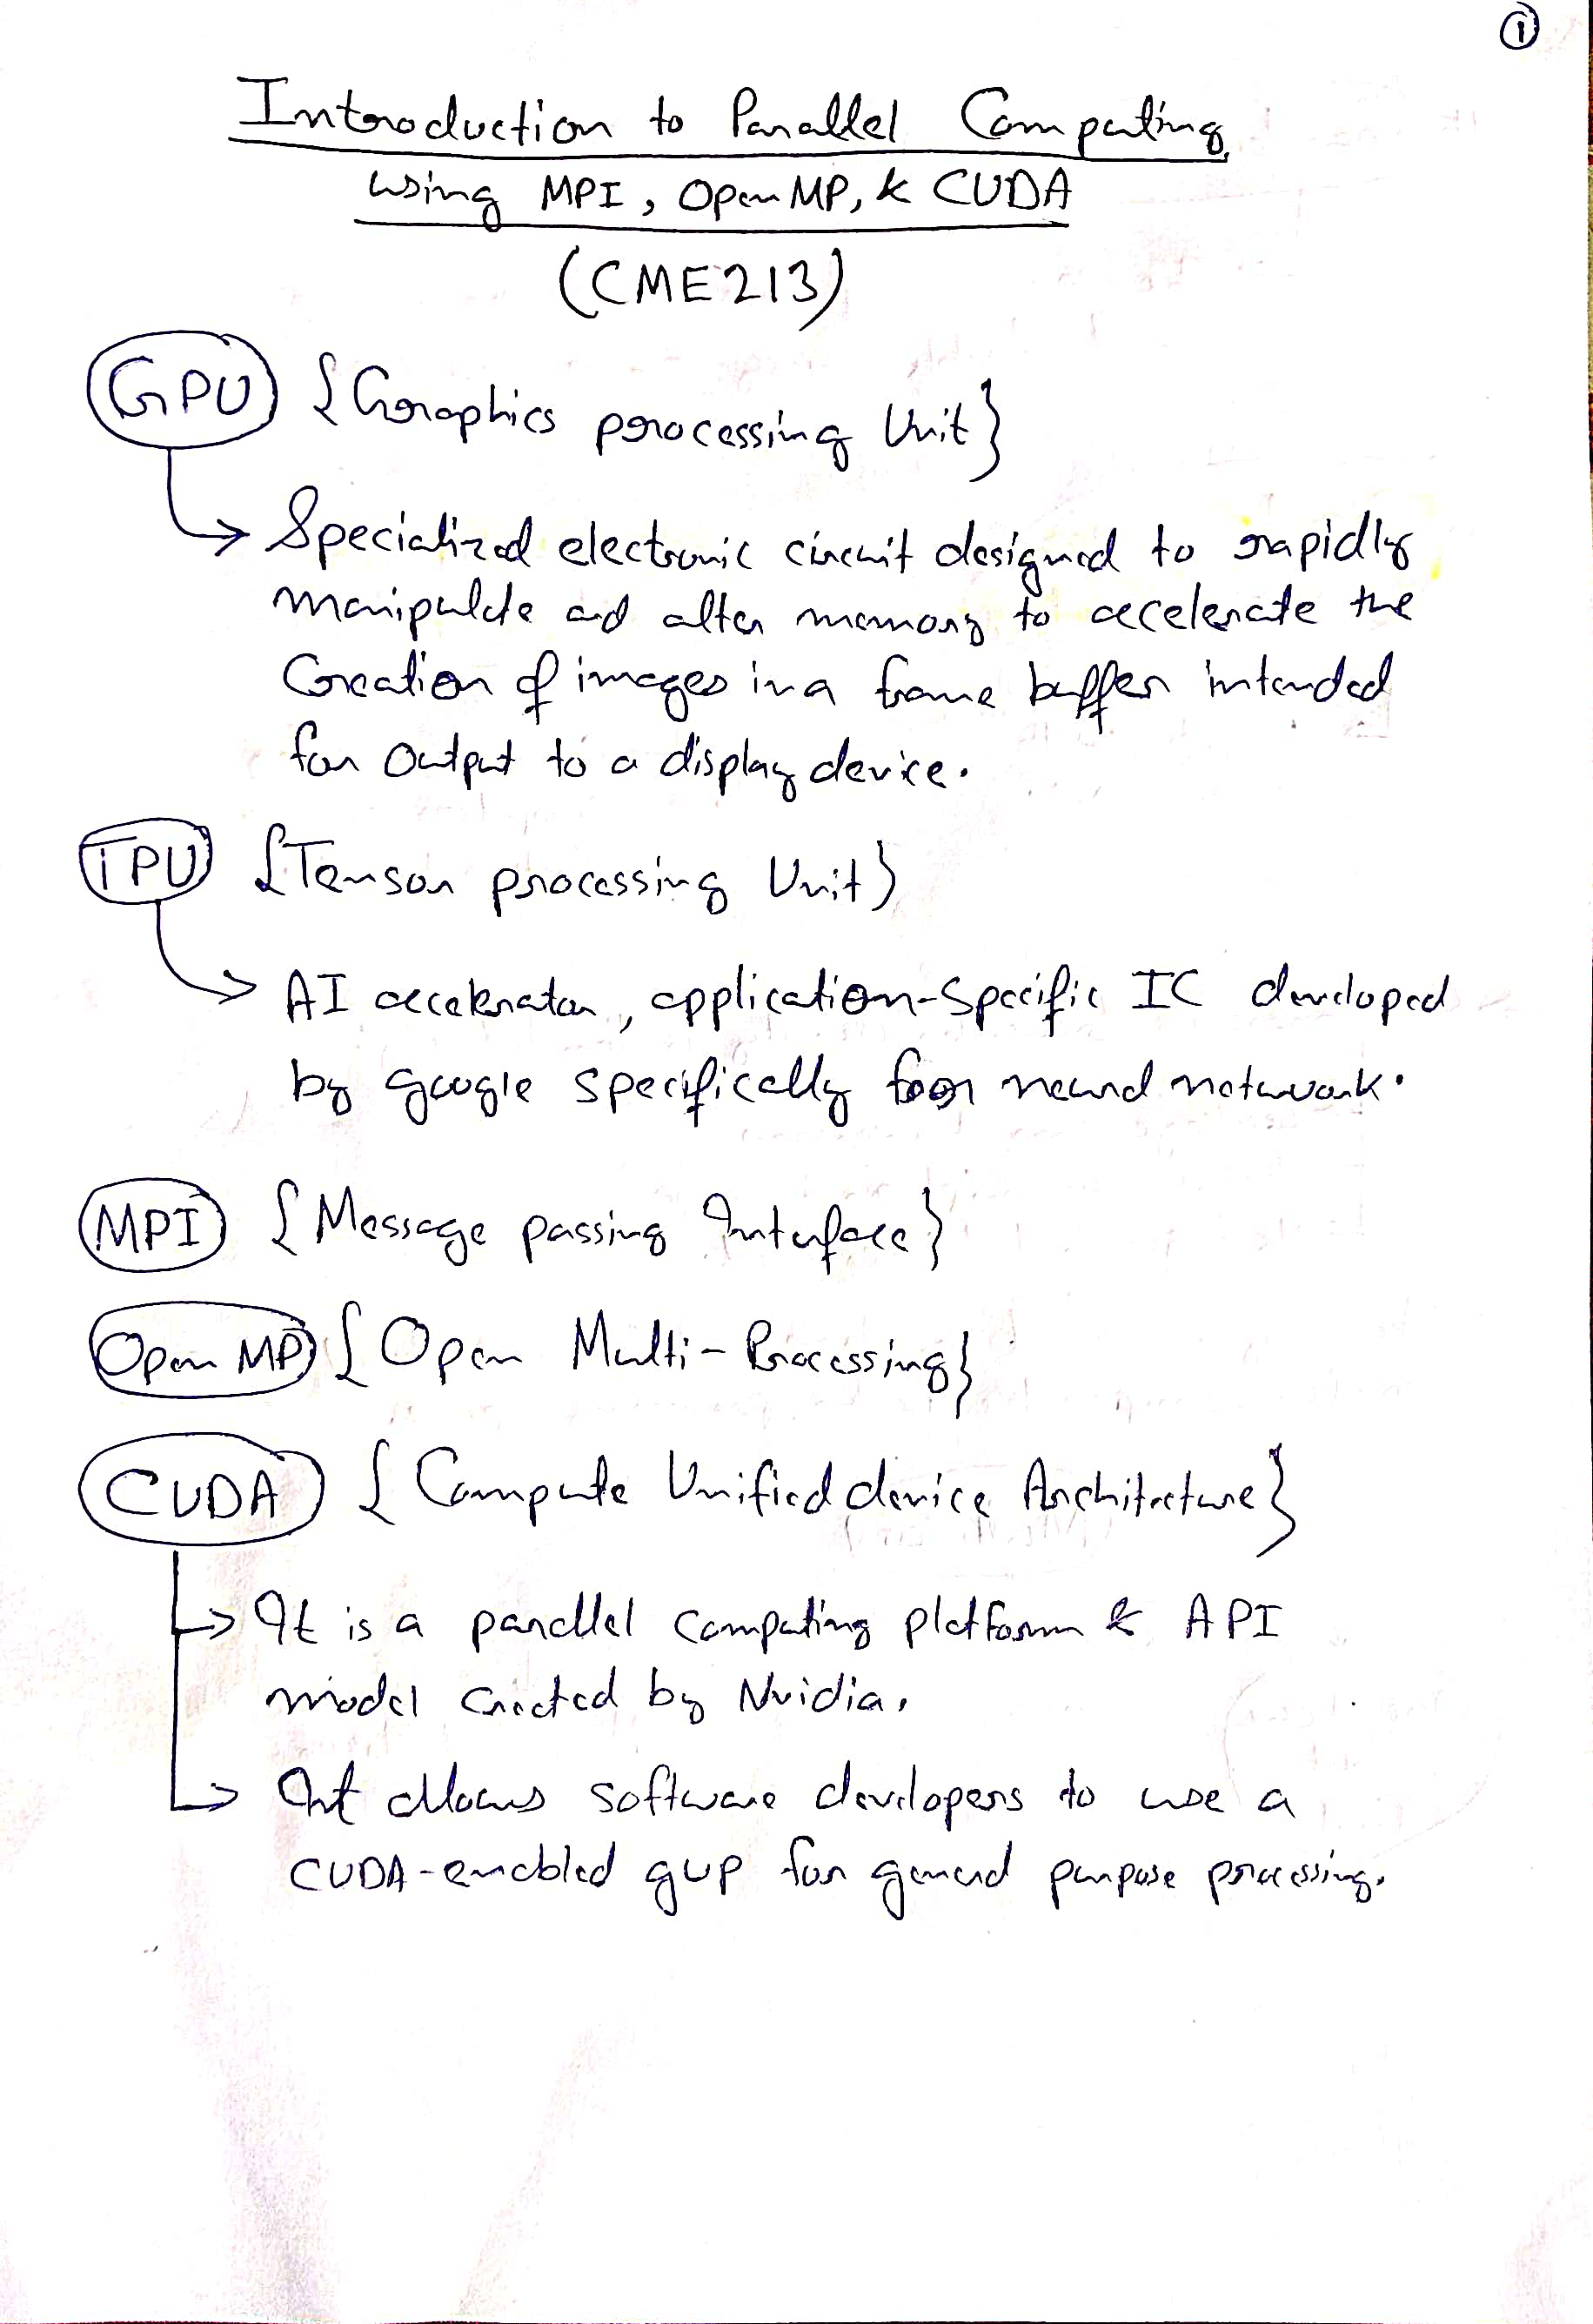 ①
Introduction to Parallel Computing
using MPI, OpenMP, & CUDA
(CME213)
GPU {Graphics processing Unit}
→ Specialized electronic circuit designed to rapidly
manipulate and alter memory to accelerate the
Creation of images in a frame buffer intended
for Output to a display device.
TPU {Tensor processing Unit}
→ AI accelerator, application-Specific IC developed
by google specifically for neural network.
MPI {Message passing Interface}
Open MP {Open Multi-Processing}
CUDA {Compute Unified device Architecture}
→ It is a parallel computing platform & API
model created by Nvidia.
→ It allows software developers to use a
CUDA-enabled gup for general purpose processing.